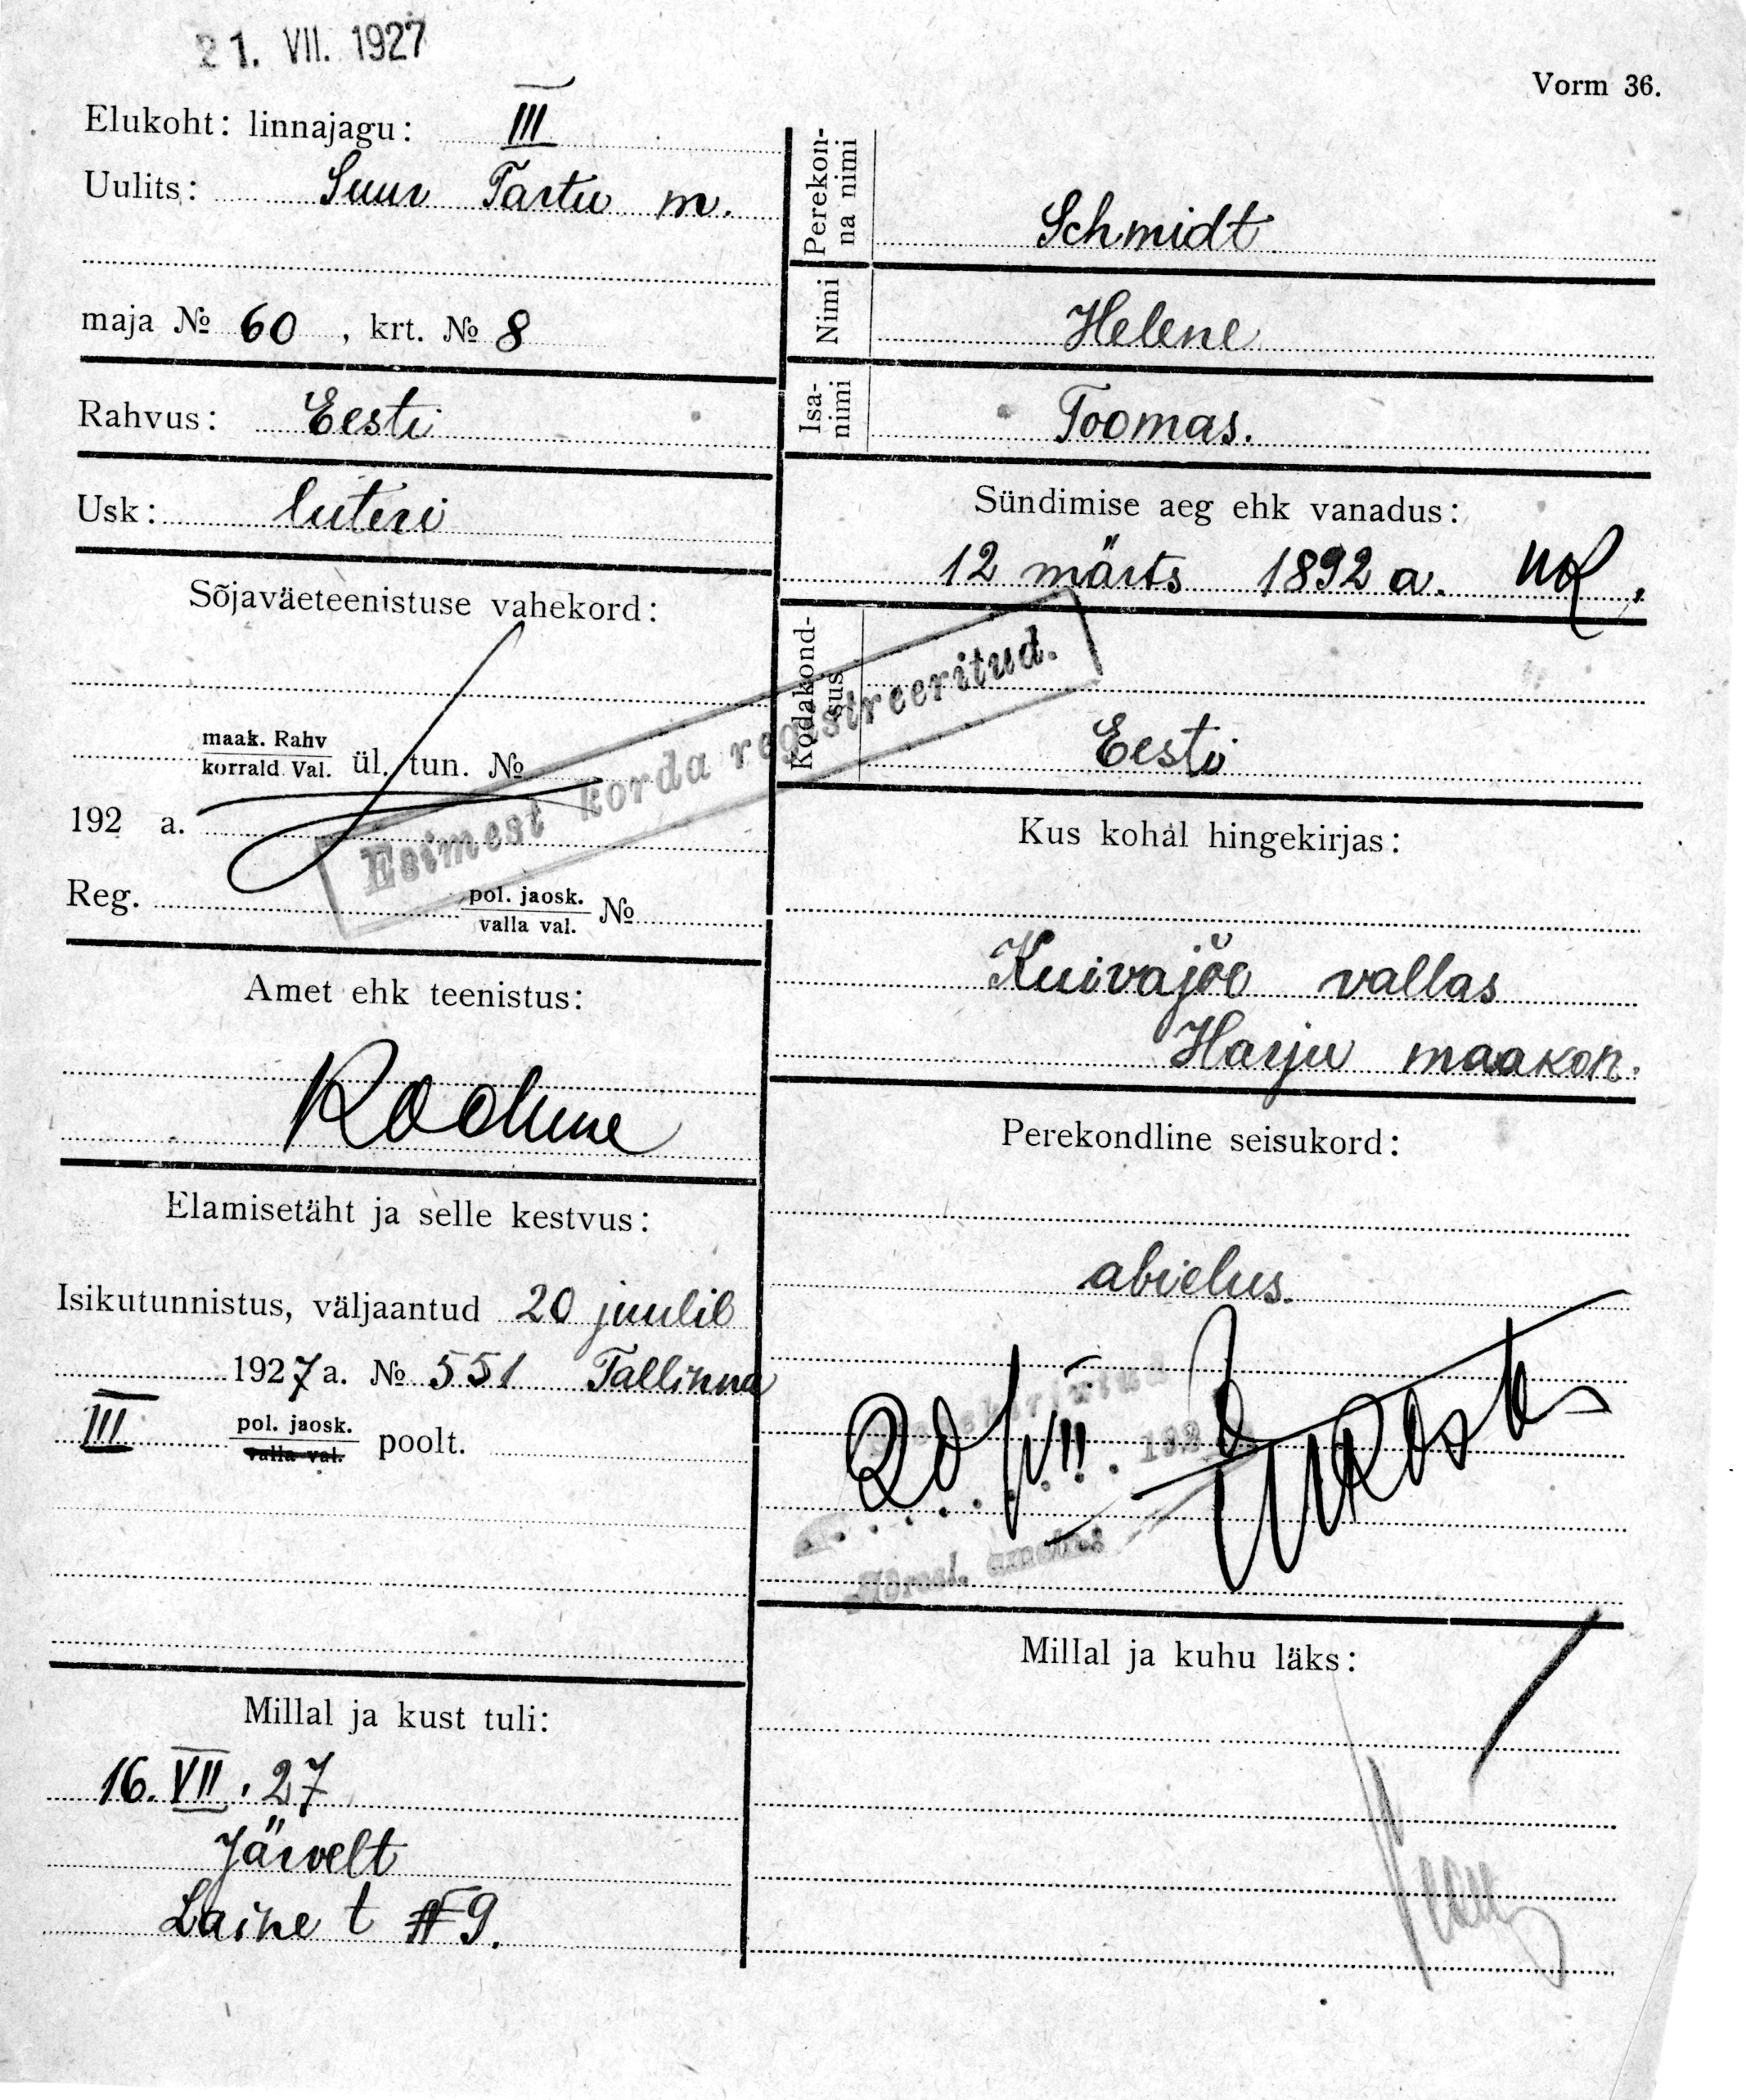 21. VII. 1927
Vorm 36.
Elukoht: linnajagu: III
Uulits: Suur Tartu m.
maja № 60, krt. № 8
Rahvus: Eesti
Usk: luteri
Sõjaväeteenistuse vahekord:
maak. Rahv
korrald. Val. ül. tun. №
192 a.
Reg. pol. jaosk.
valla val. №
Esimest korda registreeritud.
Amet ehk teenistus:
Elamisetäht ja selle kestvus:
Isikutunnistus, väljaantud 20 juulil
1927 a. № 551 Tallinna
III pol. jaosk.
valla val. poolt.
Millal ja kust tuli:
16. VII. 27
Järvelt
Laine t # 9.
Perekon-
na nimi
Schmidt
Nimi
Helene
Isa-
nimi
Toomas.
Sündimise aeg ehk vanadus:
12 märts 1892 a.
Kodakond-
sus
Eesti
Kus kohal hingekirjas:
Kuivajõe vallas
Harju maakon.
Perekondline seisukord:
abielus.
20/VII
192
Millal ja kuhu läks: